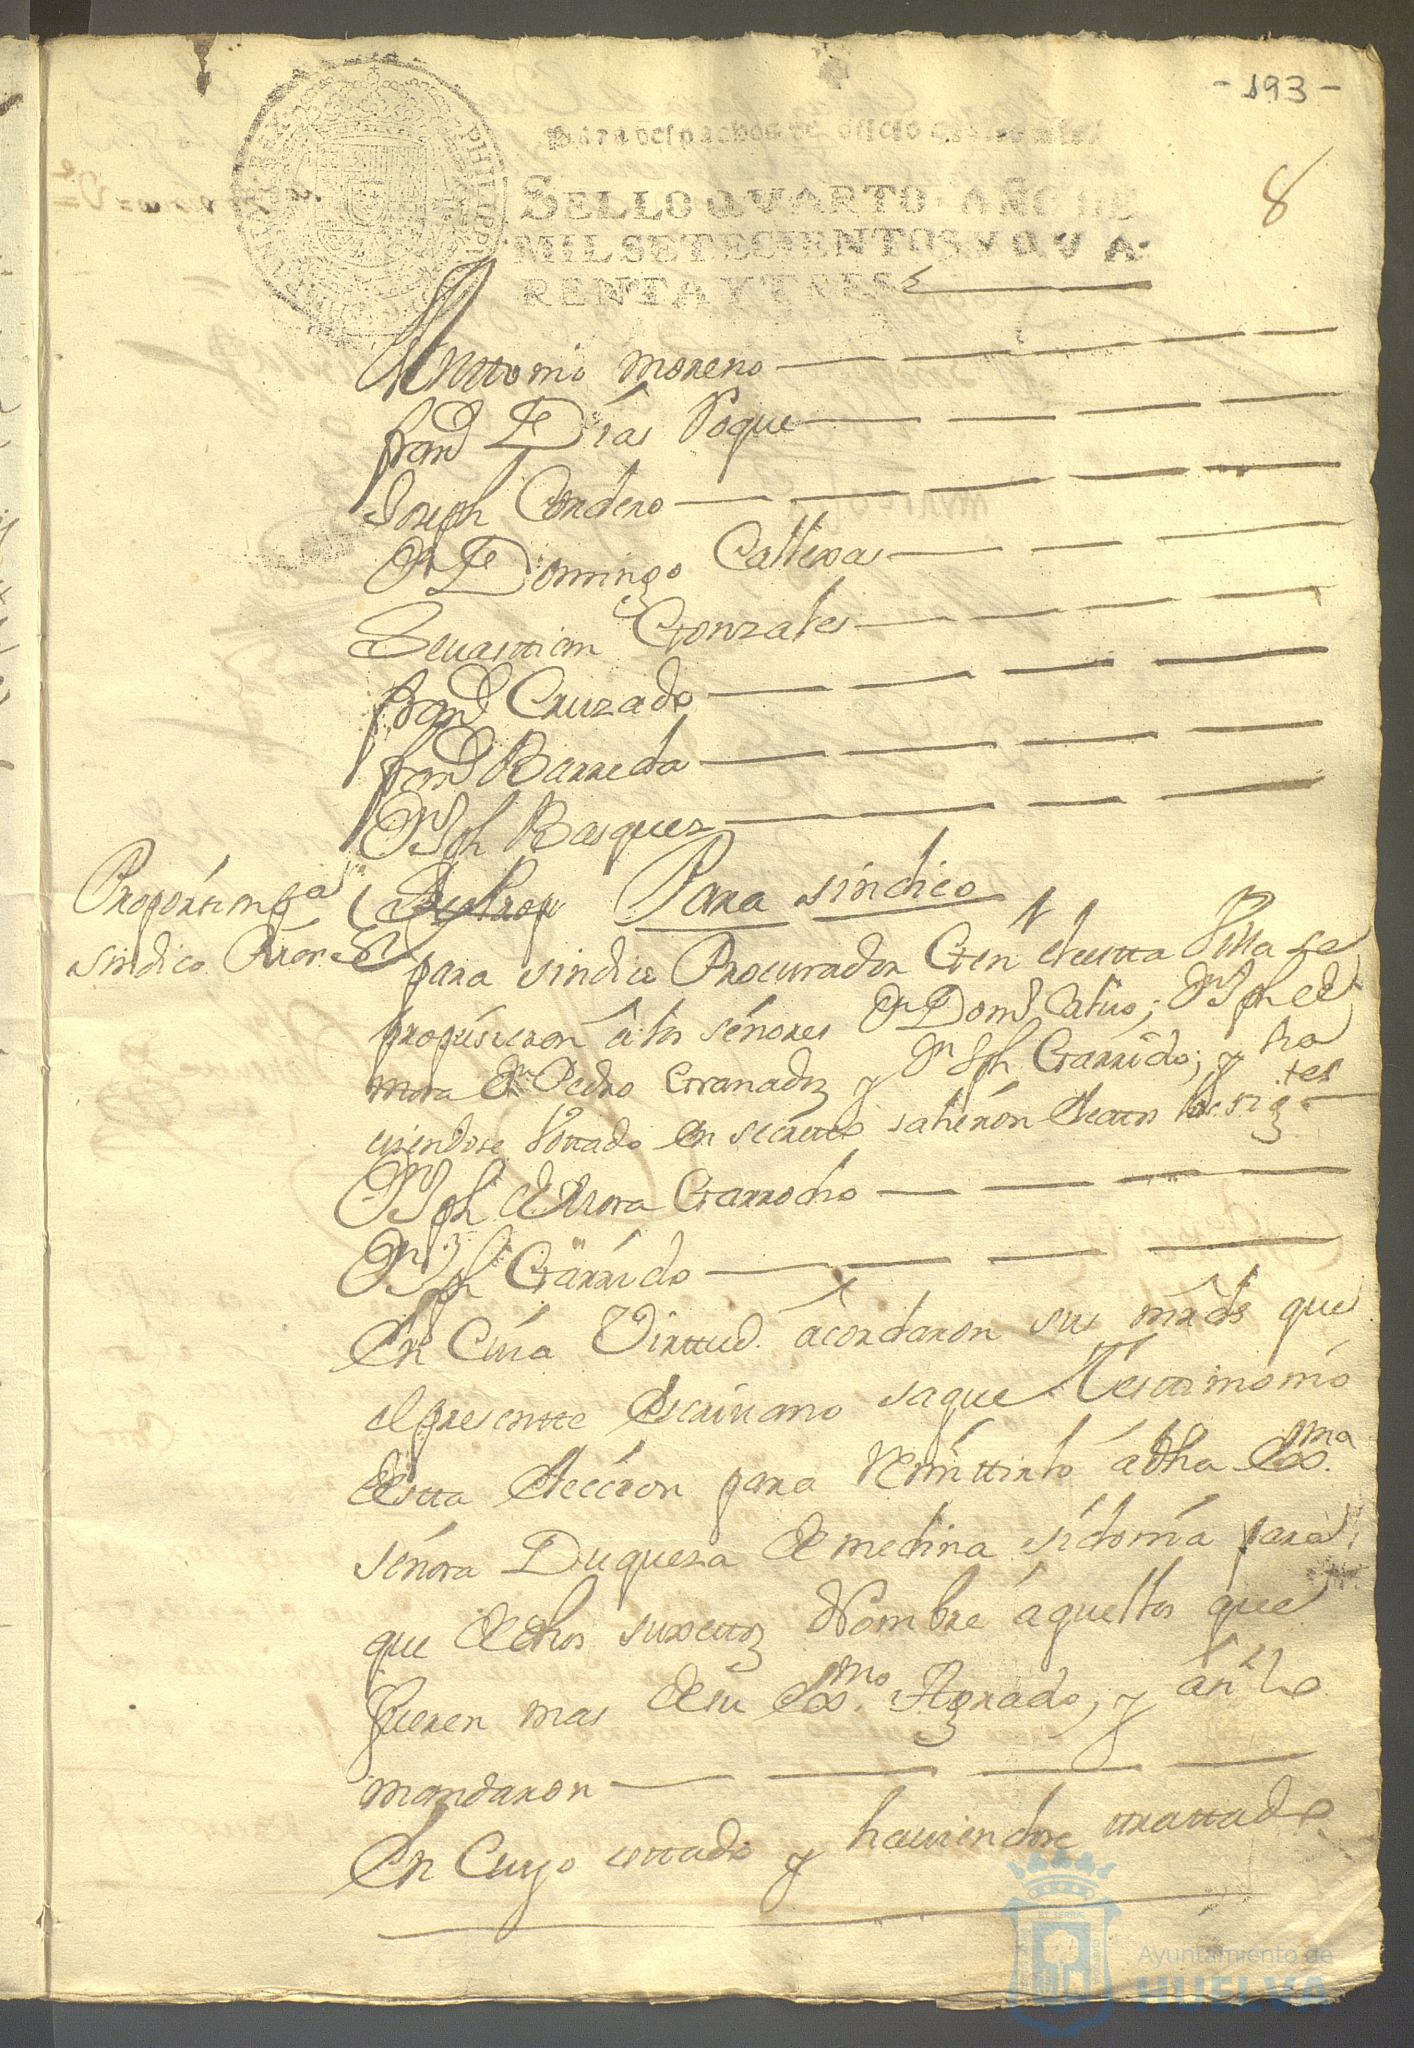 - 193 -
8
Para despachos de oficio
SELLO QVARTO. AÑO DE
MIL SETECIENTOS Y QVA
RENTA Y TRES
Anttonio Moreno
Franco Dias Roque
Joseph Cordero
Dn Domingo Callexas
Sevasttian Gonzales
Franco Cruzado
Franco Barreda
Dn Jph Basquez
Para sindico
Proposicion pa
sindico
para sindico Procurador Gen deestta Villa se
propusieron â los señores Dn Domo Calvo; Dn Jph de
Mora Dn Pedro Granados y Dn Jph Garrido; y ha
viendose Vottado en secretto salieron electos los sigtes
Dn Jph de Mora Garrocho
Dn Jph Garrido
En Cuia Virttud acordaron sus mrds que
el presentte Escrivano saque Testtimonio
destta Eleccion para Remittirlo a dha Exma
señora Duqueza de Medina Sidonia para
que de dhos suxettos Nombre aquellos que
fueren mas de su Exmo Agrado, y ansi lo
mandaron
En Cuyo esttado y haviendose trattado
Ayuntamiento de
HUELVA